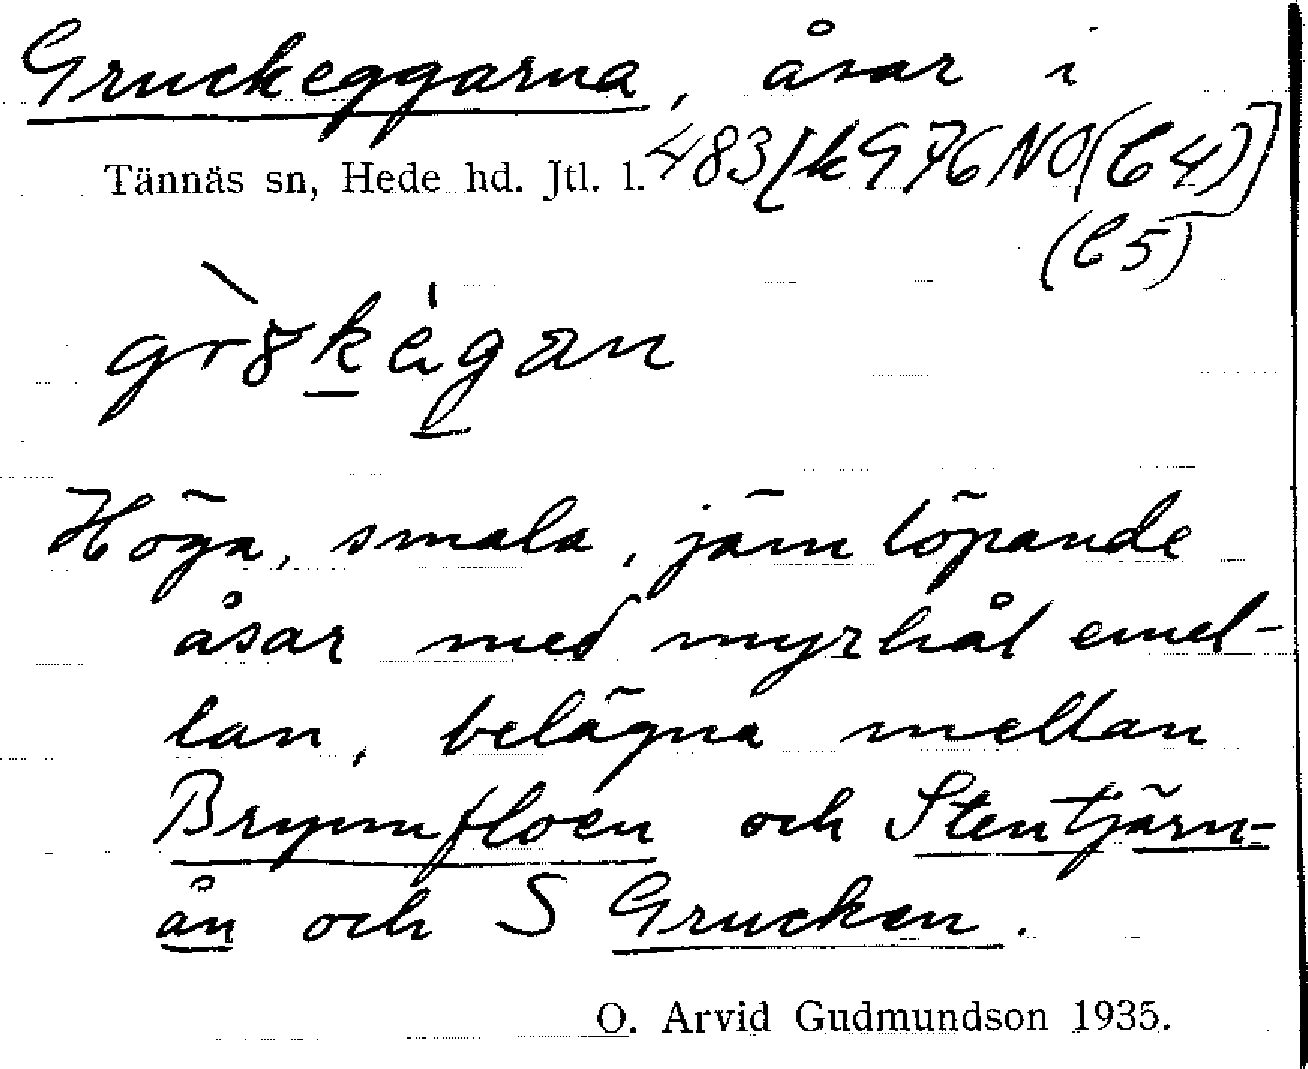 Gruckeggarna, åsar i
Tännäs sn, Hede hd. Jtl. l. 483[k976NO(C4)]
(C5)
Höga, smala, jämlöpande
åsar med myrhål emel-
lan, belägna mellan
Brynnfloen och Stentjärn-
ån och S Grucken.
O. Arvid Gudmundson 1935.